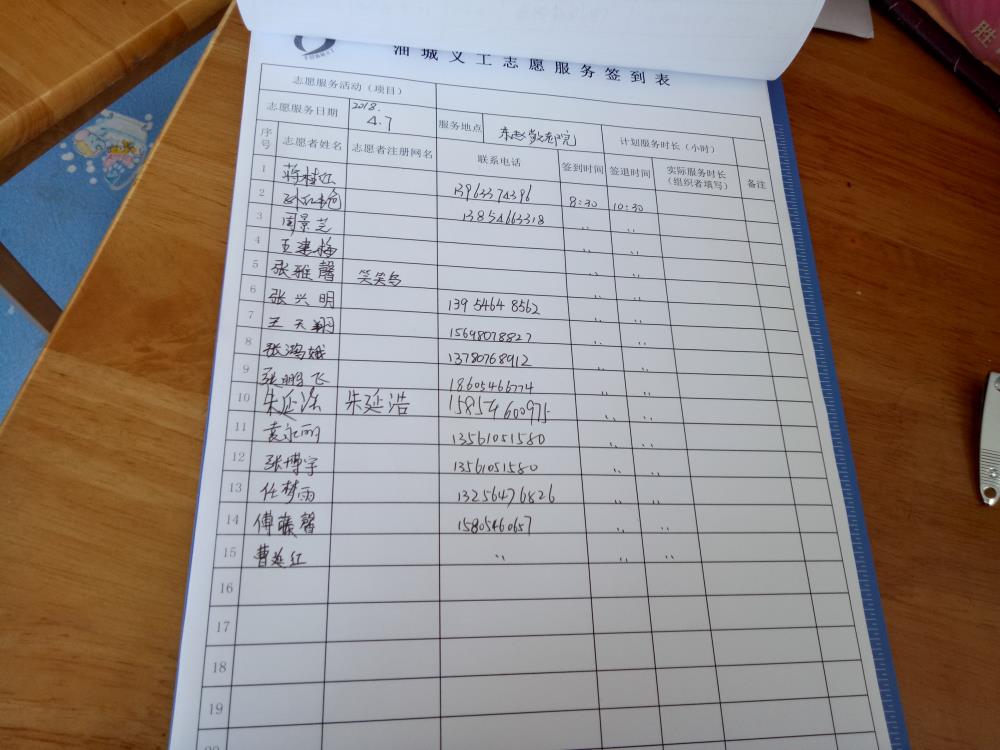 油城义工志愿服务签到表
志愿服务活动（项目）
志愿服务日期 2018. 4.7 服务地点 东赵敬老院 计划服务时长（小时）
序号 志愿者姓名 志愿者注册网名 联系电话 签到时间 签退时间 实际服务时长（组织者填写） 备注
1 蒋桂红
2 13963374396 8:30 10:30
3 周景芝 13854663318 〃 〃
4 王建梅 〃 〃
5 张雅馨 笑笑鸟 〃 〃
6 张兴明 13954648562 〃 〃
7 王天翔 15698078827 〃 〃
8 张鸿娥 13780768912 〃 〃
9 张鹏飞 18605466774 〃 〃
10 朱延浩 朱延浩 〃 〃
11 袁永丽 13561051580 〃 〃
12 张博宇 13561051580 〃 〃
13 任梦雨 13256476826 〃 〃
14 傅藤馨 15805460657 〃 〃
15 曹延红 〃 〃 〃
16
17
18
19
胜